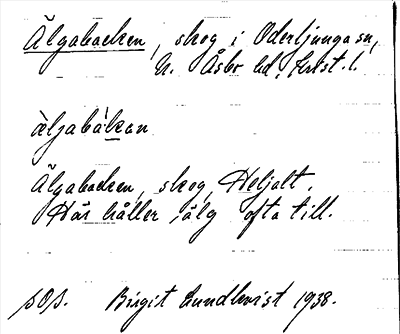 Älgabacken, skog i Oderljunga sn,
N. Åsbo hd, Krist. l.
älgabákan
Älgabacken, skog, Heljalt.
Här håller älg ofta till.
sOs. Birgit Lundkvist 1938.